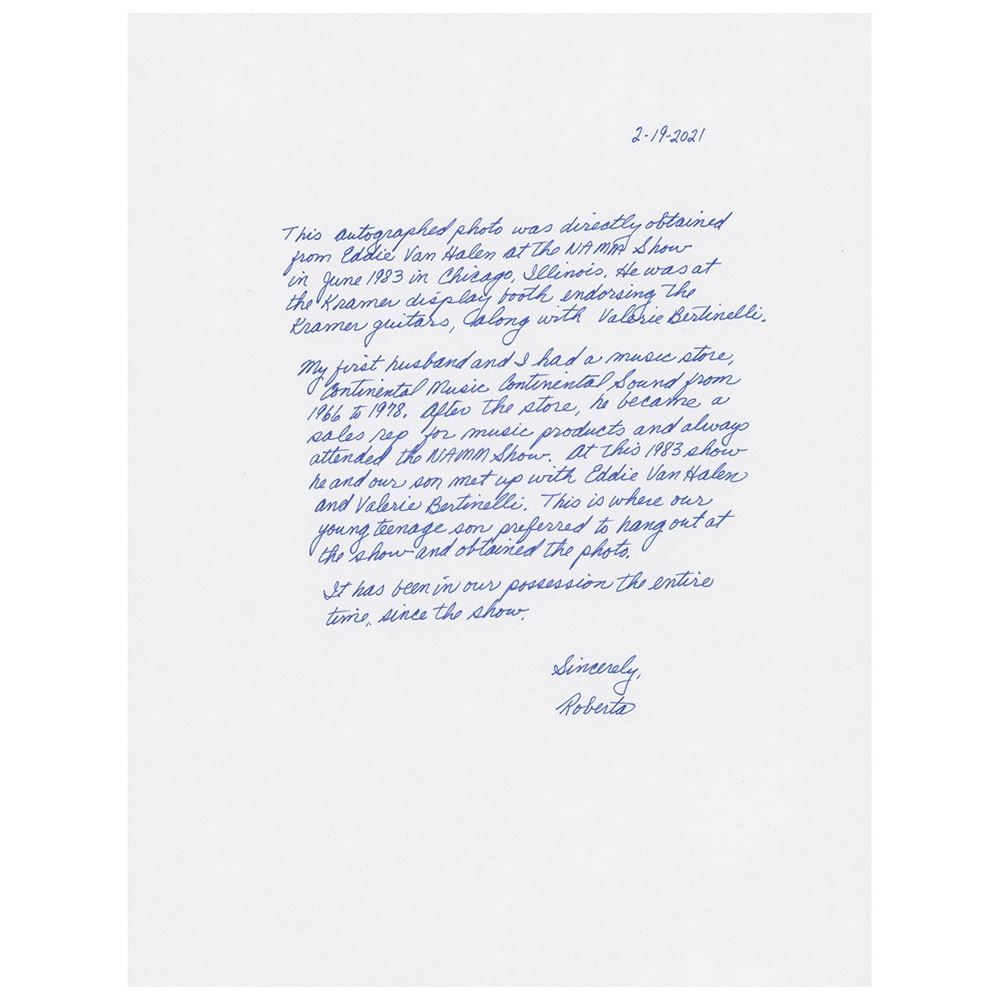 2-19-2021
This autographed photo was directly obtained
from Eddie Van Halen at the NAMM Show
in June 1983 in Chicago, Illinois. He was at
the Kramer display booth endorsing the
Kramer guitars, along with Valerie Bertinelli.
My first husband and I had a music store,
Continental Music Continental Sound from
1966 to 1978. After the store, he became a
sales rep for music products and always
attended the NAMM Show. At this 1983 show
he and our son met up with Eddie Van Halen
and Valerie Bertinelli. This is where our
young teenage son preferred to hang out at
the show and obtained the photo.
It has been in our possession the entire
time, since the show.
Sincerely,
Roberta